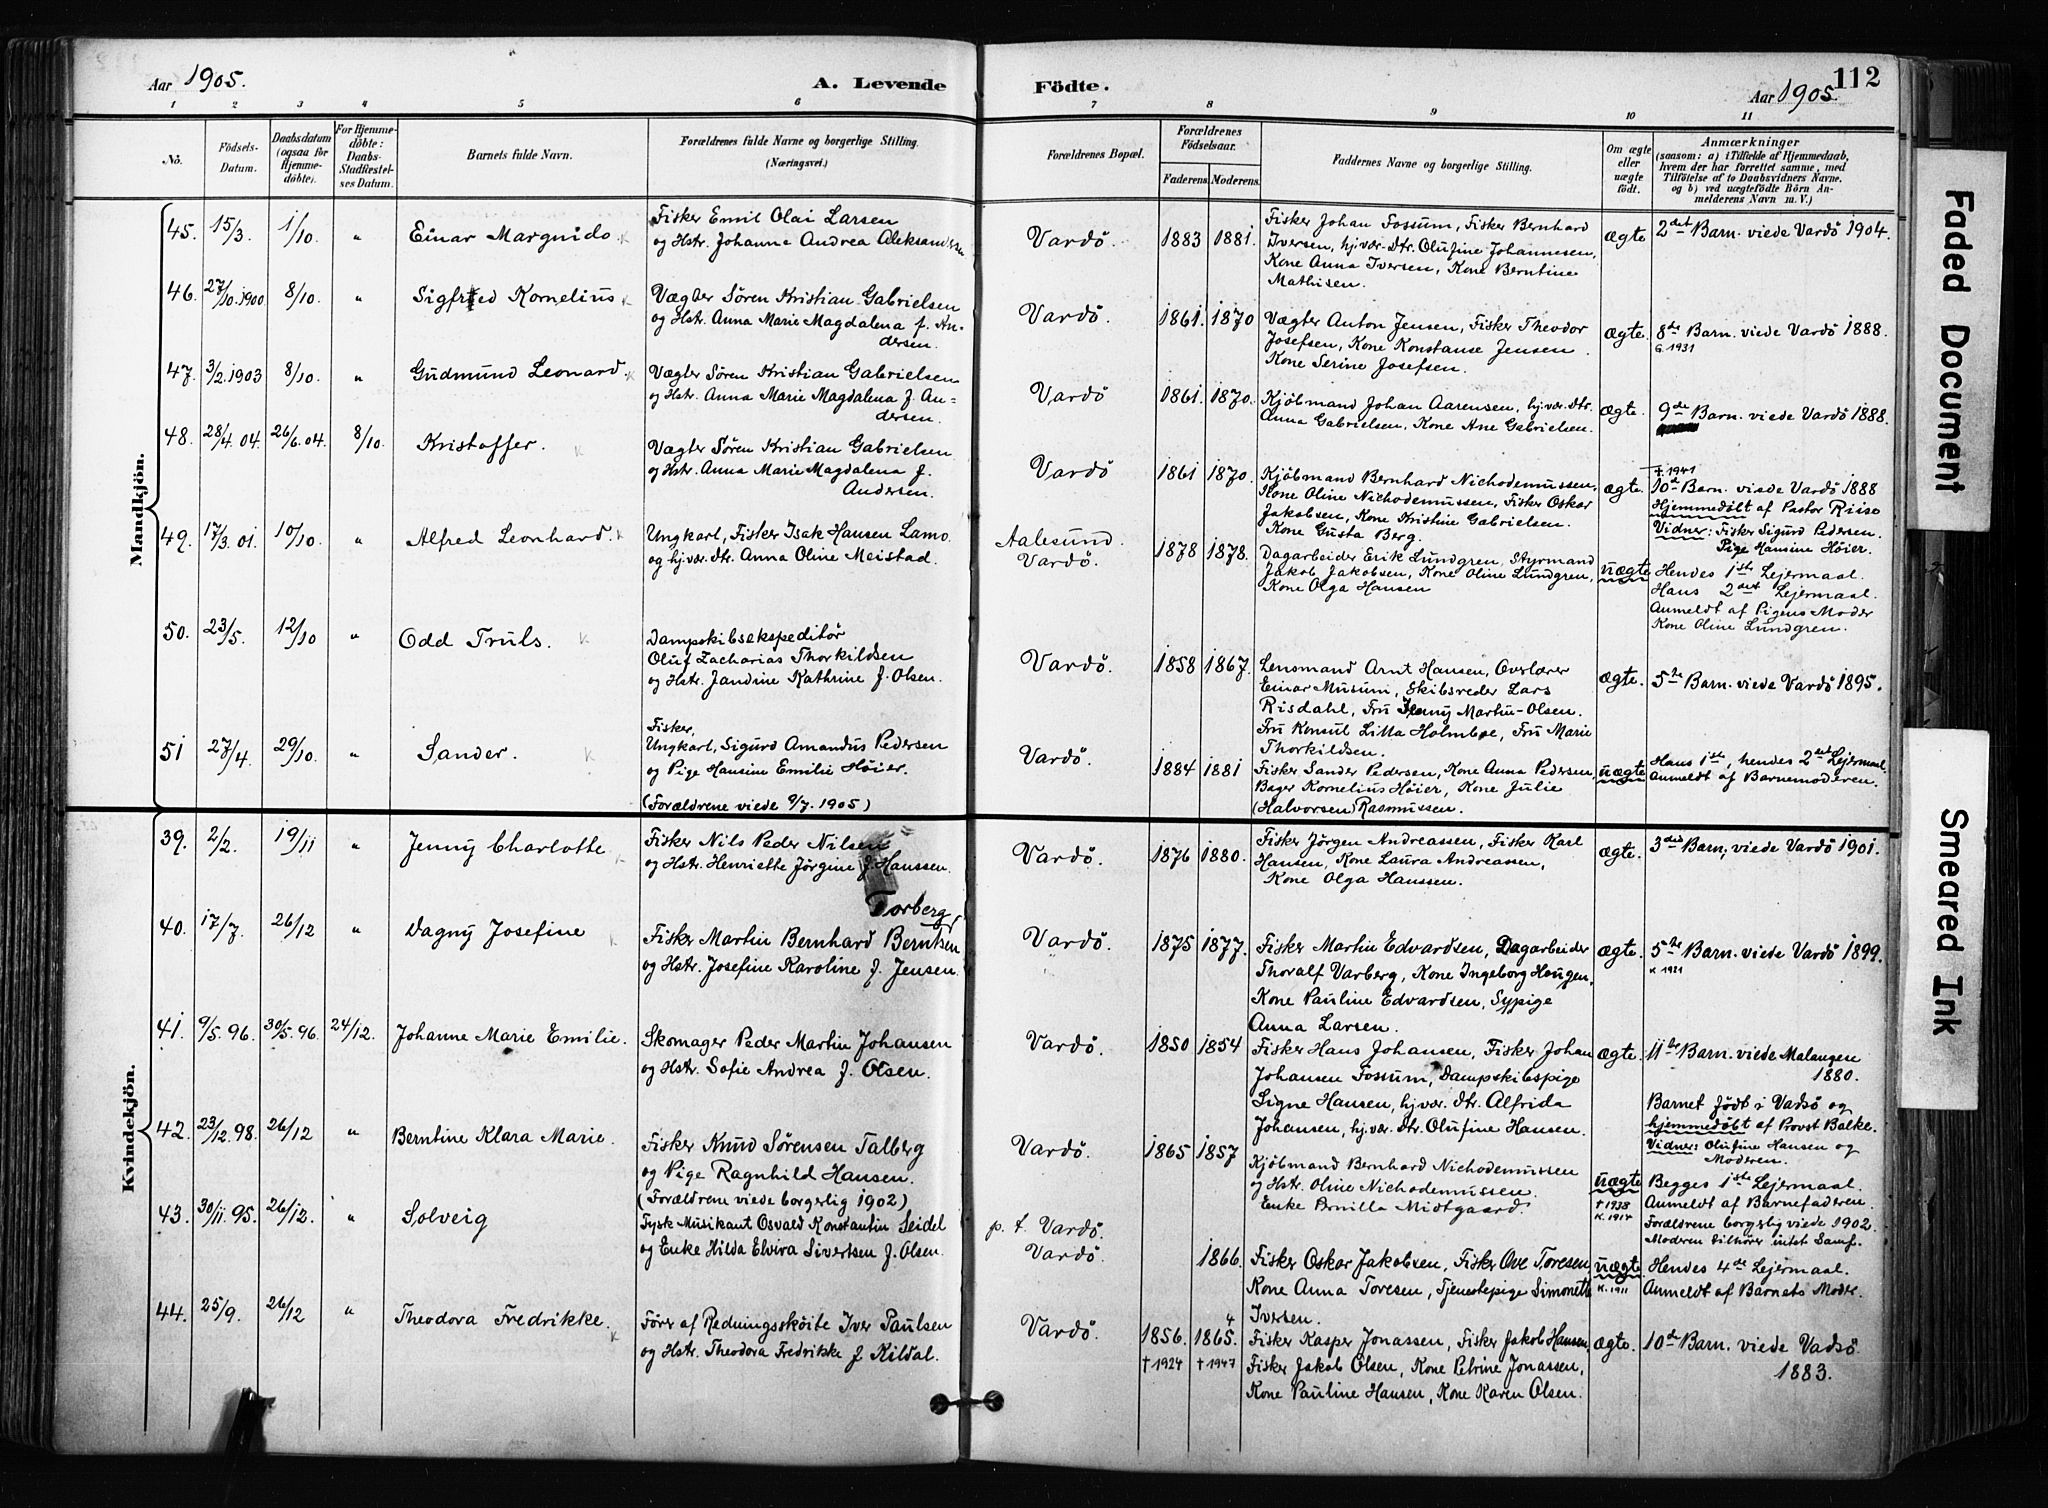 Aar 1905.
A. Levende
Födte.
Aar 1905.
112
1 2 3 4 5 6 7 8 9 10 11
No.
Födsels-
Datum.
Daabsdatum
(ogsaa for
Hjemme-
döbte).
For Hjemme-
döbte:
Daabs-
Stadfæstel-
ses Datum.
Barnets fulde Navn.
Forældrenes fulde Navne og borgerlige Stilling.
(Næringsvei.)
Forældrenes Bopæl.
Forældrenes
Födselsaar.
Faderens. Moderens.
Faddernes Navne og borgerlige Stilling.
Om ægte
eller
uægte
födt.
Anmærkninger
(saasom: a) i Tilfælde af Hjemmedaab,
hvem der har forrettet samme, med
Tilföielse af to Daabsvidners Navne.
og b) ved uægtefödte Börn An-
melderens Navn m. V.)
Mandkjön.
45. 15/3. 1/10. " Einar Margnido
Fisker Emil Olai Larsen
og Hstr. Johanne Andrea Aleksandersen
Vardö. 1883 1881.
Fisker Johan Fossum, Fisker Bernhard
Iversen, hj.vær. Dtr. Olufine Johannesen,
Kone Anna Iversen, Kone Berntine
Mathisen.
ægte 2det Barn. viede Vardö 1904.
46. 27/10.1900 8/10. " Sigfred Kornelius
Vægter Sören Kristian Gabrielsen
og Hstr. Anna Marie Magdalena f. An-
dersen.
Vardö. 1861. 1870
Vægter Anton Jensen, Fisker Theodor
Josefsen, Kone Konstanse Jensen.
Kone Serine Josefsen.
ægte. 8de Barn. viede Vardö 1888.
G. 1931
47. 3/2.1903 8/10. " Gudmund Leonard.
Vægter Sören Kristian Gabrielsen
og Hstr. Anna Marie Magdalena f. An-
dersen.
Vardö 1861. 1870.
Kjöbmand Johan Aarensen, hj.vær. Dtr.
Anna Gabrielsen, Kone Ane Gabrielsen.
ægte. 9de Barn. viede Vardö 1888.
48. 28/4.04. 26/6.04. 8/10. Kristoffer.
Vægter Sören Kristian Gabrielsen
og Hstr. Anna Marie Magdalena f.
Andersen.
Vardö 1861 1870.
Kjöbmand Bernhard Nichodemussen,
Kone Oline Nichodemussen, Fisker Oskar
Jakobsen, Kone Kristine Gabrielsen.
Kone Gusta Berg.
ægte.
†. 1941
10de Barn. viede Vardö 1888
Hjemmedöbt af Pastor Riise
Vidner: Fisker Sigurd Pedersen.
Pige Hansine Höier.
49. 17/3.01. 10/10. " Alfred Leonhard.
Ungkarl, Fisker Isak Hansen Lamo.
og hj.vær. Dtr. Anna Oline Meistad.
Aalesund.
Vardö.
1878 1878.
Dagarbeider Erik Lundgren, Styrmand
Jakob Jakobsen, Kone Oline Lundgren,
Kone Olga Hansen
uægte Hendes 1ste Lejermaal.
Hans 2det Lejermaal.
Anmeldt af Pigens Moder
Kone Oline Lundgren.
50. 23/5. 12/10 " Odd Truls.
Dampskibsekspeditör
Oluf Zacharias Thorkildsen
og Hstr. Jandine Kathrine f. Olsen.
Vardö. 1858 1867.
Lensmand Arnt Hansen, Overlærer
Einar Musum, Skibsreder Lars
Risdahl, Fru Jenny Martin-Olsen.
Fru Konsul Litta Holmboe, Fru Marie
Thorkildsen.
ægte. 5te Barn. viede Vardö 1895.
51 27/4. 29/10. " Sander.
Fisker,
Ungkarl, Sigurd Amandus Pedersen
og Pige Hansine Emilie Höier.
(Forældrene viede 9/7. 1905)
Vardö. 1884 1881
Fisker Sander Pedersen, Kone Anna Pedersen,
Bager Kornelius Höier, Kone Julie
(Halvorsen) Rasmussen.
uægte Hans 1ste, hendes 2det Lejermaal.
Anmeldt af Barnemoderen.
Kvindekjön.
39. 2/2. 19/11 " Jenny Charlotte
Fisker Nils Peder Nilsen
og Hstr. Henriette Jörgine f. Hanssen.
Vardö. 1876 1880.
Fisker Jörgen Andreassen, Fisker Karl
Hansen, Kone Laura Andreassen,
Kone Olga Hanssen.
ægte. 3die Barn, viede Vardö 1901.
40. 17/7. 26/12 " Dagny Josefine
Torberg
Fisker Martin Bernhard Berntsen
og Hstr. Josefine Karoline f. Jensen.
Vardö. 1875 1877.
Fisker Martin Edvardsen, Dagarbeider
Thoralf Varberg, Kone Ingeborg Haugen,
Kone Pauline Edvardsen, Sypige
Anna Larsen.
ægte. 5te Barn. viede Vardö 1899.
K 1921
41. 9/5.96. 30/5.96 24/12. Johanne Marie Emilie.
Skomager Peder Martin Johansen
og Hstr. Sofie Andrea f. Olsen.
Vardö. 1850 1854
Fisker Hans Johansen, Fisker Johan
Johansen Fossum, Dampskibspige
Signe Hansen, hj.vær. Dtr. Alfrida
Johansen, hj.vær. Dtr. Olufine Hansen.
ægte. 11te Barn. viede Malangen
1880.
Barnet födt i Vadsö og
hjemmedöbt af Provst Balke.
Vidner: Olufine Hansen og
Moderen.
42. 23/12.98. 26/12 " Berntine Klara Marie.
Fisker Knud Sörensen Talberg
og Pige Ragnhild Hansen.
(Forældrene viede borgerlig 1902)
Vardö. 1865 1857
Kjöbmand Bernhard Nichodemussen
og Hstr. Oline Nichodemussen.
Enke Pernilla Midtgaard
uægte
† 1938
K. 1914
Begges 1ste Lejermaal.
Anmeldt af Barnefaderen.
Forældrene borgerlig viede 1902.
Moderen tilhörer intet Samf.
43. 30/11.95. 26/12. " Solveig
Tysk Musikant Osvald Konstantin Seidel
og Enke Hilda Elvira Sivertsen f. Olsen.
p. t. Vardö.
Vardö.
1866.
Fisker Oskar Jakobsen, Fisker Ove Toresen,
Kone Anna Toresen, Tjenestepige Simonette
Iversen.
uægte
K. 1911
Hendes 4de Lejermaal.
Anmeldt af Barnets Moder.
44. 25/9. 26/12 " Theodora Fredrikke.
Förer af Redningssköite Iver Paulsen
og Hstr. Theodora Fredrikke f. Kildal.
Vardö. 1856. 1865.
4
† 1924 † 1947
Fisker Kasper Jonassen, Fisker Jakob Hansen,
Fisker Jakob Olsen, Kone Petrine Jonassen,
Kone Pauline Hansen, Kone Karen Olsen.
ægte. 10de Barn. viede Vadsö
1883.
Faded Document
Smeared Ink